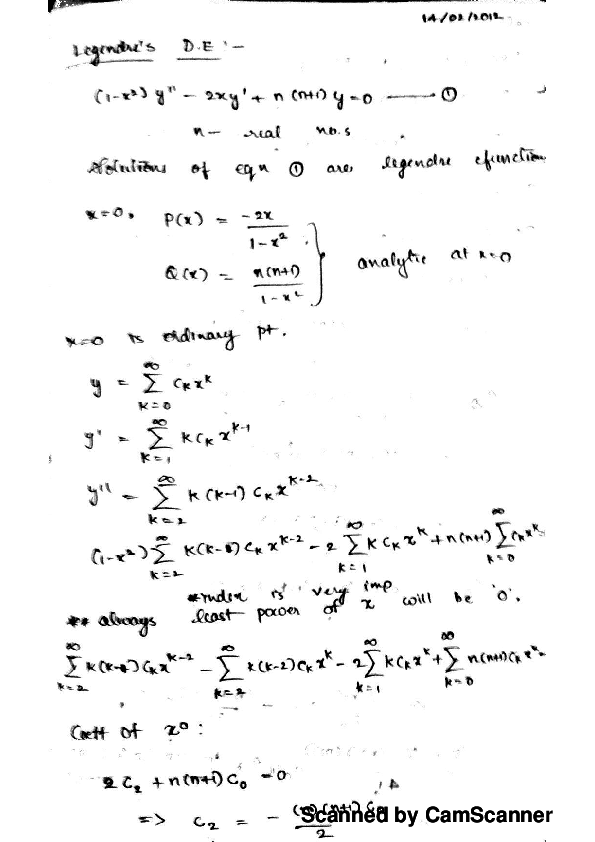 14/02/2012
Legendre's D.E :-
(1-x²) y'' - 2xy' + n(n+1) y = 0 ——— ①
n - real no.s
Solutions of eqn ① are legendre function
x=0, P(x) = -2x / (1-x²)
Q(x) = n(n+1) / (1-x²) } analytic at x=0
x=0 is ordinary pt.
y = ∑_{k=0}^{∞} C_k x^k
y' = ∑_{k=1}^{∞} k C_k x^{k-1}
y'' = ∑_{k=2}^{∞} k(k-1) C_k x^{k-2}
(1-x²) ∑_{k=2}^{∞} k(k-1) C_k x^{k-2} - 2 ∑_{k=1}^{∞} k C_k x^k + n(n+1) ∑_{k=0}^{∞} C_k x^k
*index is very imp
** always least power of x will be '0'.
∑_{k=2}^{∞} k(k-1) C_k x^{k-2} - ∑_{k=2}^{∞} k(k-2) C_k x^k - 2 ∑_{k=1}^{∞} k C_k x^k + ∑_{k=0}^{∞} n(n+1) C_k x^k =
Coeff of x⁰ :
2 C₂ + n(n+1) C₀ = 0
=> C₂ = - (n)(n+1) C₀ / 2
Scanned by CamScanner